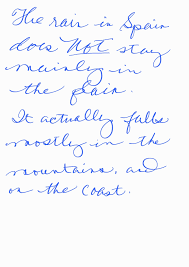 The rain in Spain
does NOT stay
mainly in
the plain.
It actually falls
mostly in the
mountains, and
on the coast.